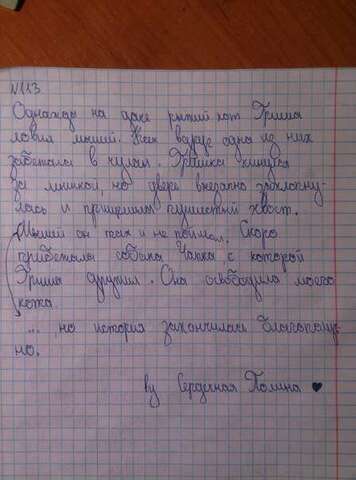 №113
Однажды на даче рыжий кот Гриша
ловил мышей. Как вдруг одна из них
забежала в чулан. Гришка кинулся
за мышкой, но дверь внезапно захлопну-
лась и прищемила пушистый хвост.
Мышей он так и не поймал. Скоро
прибежала собака Чапка с которой
Гриша дружил. Она освободила моего
кота.
... но история закончилась благополуч-
но.
by Сердечная Полина ♥